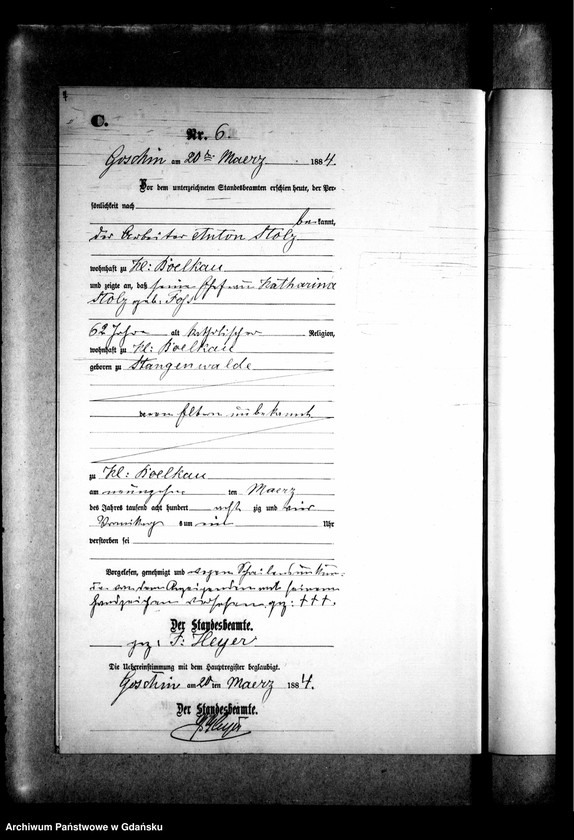 C.
Nr. 6.
Goschin am 20ten Maerz 1884.
Vor dem unterzeichneten Standesbeamten erschien heute, der Per-
sönlichkeit nach
bekannt,
der Arbeiter Anton Stolz
wohnhaft zu Kl: Boelkau
und zeigte an, daß seine Ehefrau Katharina
Stolz geb. Foss
62 Jahre alt katholischer Religion,
wohnhaft zu Kl: Boelkau
geboren zu Stangenwalde
deren Eltern unbekannt
zu Kl: Boelkau
am neunzehn ten Maerz
des Jahres tausend acht hundert acht zig und vier
Vormittags um ein Uhr
verstorben sei
Vorgelesen, genehmigt und wegen Schreibensunkun-
de von dem Anzeigenden mit seinem
Handzeichen versehen gez: +++.
Der Standesbeamte.
gez: F: Heyer
Die Uebereinstimmung mit dem Hauptregister beglaubigt.
Goschin am 20 ten Maerz 1884.
Der Standesbeamte.
Heyer
Archiwum Państwowe w Gdańsku